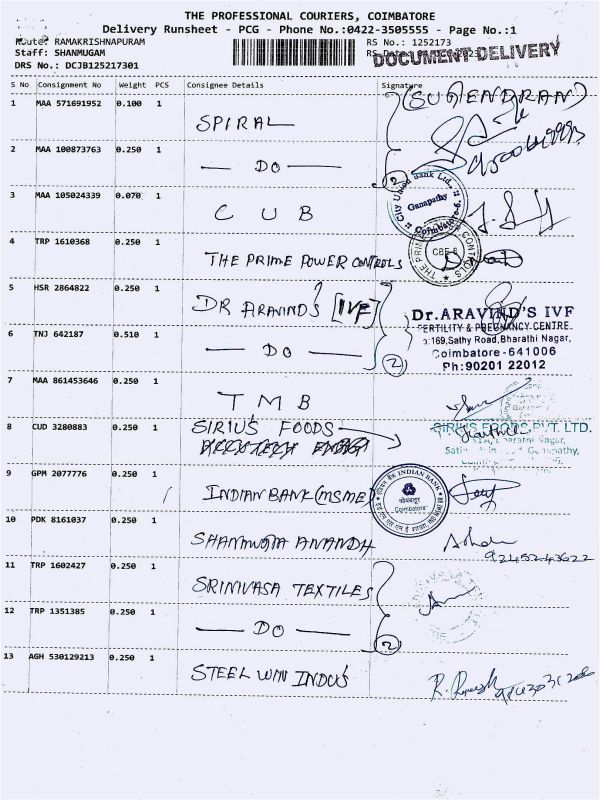 THE PROFESSIONAL COURIERS, COIMBATORE
Delivery Runsheet - PCG - Phone No.:0422-3505555 - Page No.:1
Route: RAMAKRISHNAPURAM
RS No.: 1252173
Staff: SHANMUGAM
DOCUMENT DELIVERY
DRS No.: DCJB125217301
S No Consignment No Weight PCS Consignee Details Signature
1 MAA 571691952 0.100 1 SPIRAL (SUGENDRAN)
2 MAA 100873763 0.250 1 — DO — 2
City Union Bank Ltd., Ganapathy Coimbatore-6.
3 MAA 105024339 0.070 1 CUB
4 TRP 1610368 0.250 1 THE PRIME POWER CONTROLS
CBE-6
5 HSR 2864822 0.250 1 DR ARAVIND'S [IVF]
Dr.ARAVIND'S IVF
FERTILITY & PREGNANCY CENTRE.
:169,Sathy Road,Bharathi Nagar,
Coimbatore-641006
Ph:90201 22012
6 TNJ 642187 0.510 1 — DO — 2
7 MAA 861453646 0.250 1 TMB
8 CUD 3280883 0.250 1 SIRIUS FOODS
SIRIUS FOODS PVT. LTD.
9 GPM 2077776 0.250 1 INDIAN BANK (MSME)
INDIAN BANK
Coimbatore
10 PDK 8161037 0.250 1 SHANMUGA ANANDH
9245243622
11 TRP 1602427 0.250 1 SRINIVASA TEXTILES
12 TRP 1351385 0.250 1 — DO — 2
13 AGH 530129213 0.250 1 STEEL WIN INDUS